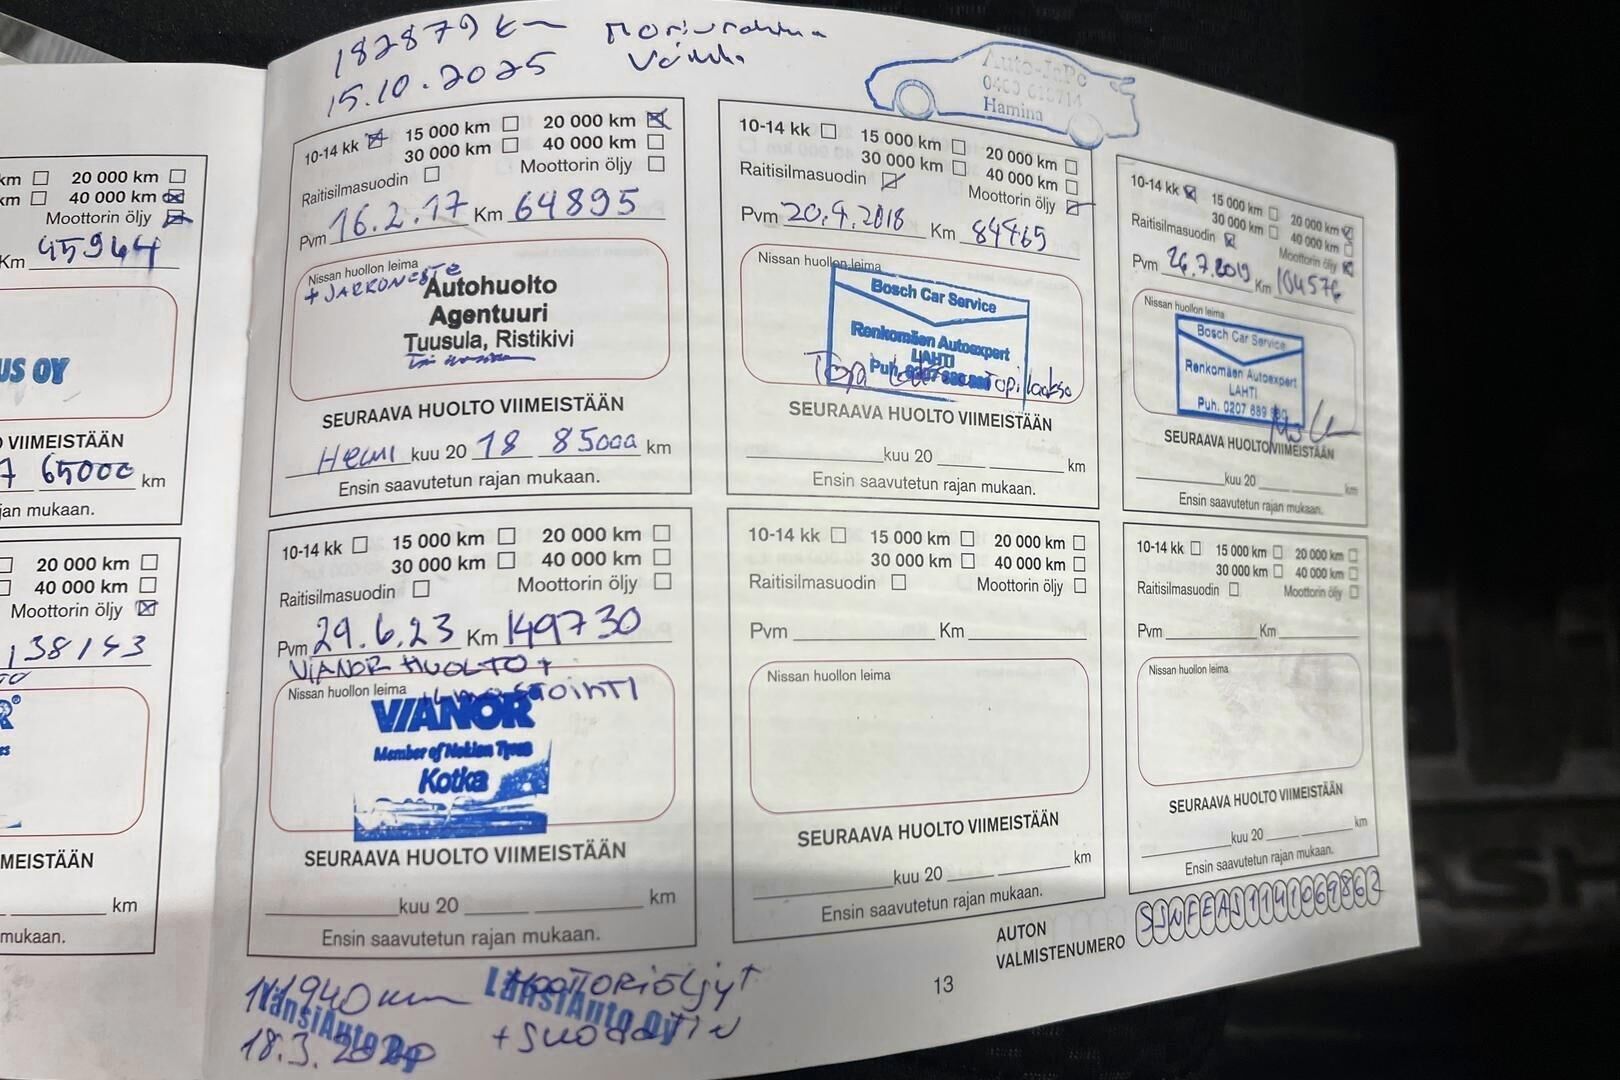 182879 km
15.10.2025
Auto-JaPo
Hamina
km 20 000 km
km 40 000 km
Moottorin öljy
Km 45944
US OY
VIIMEISTÄÄN
7 65000 km
jan mukaan.
20 000 km
40 000 km
Moottorin öljy
138143
MEISTÄÄN
km
mukaan.
10-14 kk 15 000 km 20 000 km
30 000 km 40 000 km
Raitisilmasuodin Moottorin öljy
Pvm 16.2.17 Km 64895
Nissan huollon leima
+ JARRUNESTE
Autohuolto
Agentuuri
Tuusula, Ristikivi
SEURAAVA HUOLTO VIIMEISTÄÄN
Helmi kuu 20 18 85000 km
Ensin saavutetun rajan mukaan.
10-14 kk 15 000 km 20 000 km
30 000 km 40 000 km
Raitisilmasuodin Moottorin öljy
Pvm 20.9.2018 Km 84465
Nissan huollon leima
Bosch Car Service
Renkomäen Autoexpert
LAHTI
Puh.
Topi Laakso
SEURAAVA HUOLTO VIIMEISTÄÄN
kuu 20 km
Ensin saavutetun rajan mukaan.
10-14 kk 15 000 km 20 000 km
30 000 km 40 000 km
Raitisilmasuodin Moottorin öljy
Pvm 26.7.2019 Km 104576
Nissan huollon leima
Bosch Car Service
Renkomäen Autoexpert
LAHTI
Puh. 0207 689
SEURAAVA HUOLTO VIIMEISTÄÄN
kuu 20 km
Ensin saavutetun rajan mukaan.
10-14 kk 15 000 km 20 000 km
30 000 km 40 000 km
Raitisilmasuodin Moottorin öljy
Pvm 29.6.23 Km 149730
VIANOR HUOLTO +
Nissan huollon leima
ilmastointi
VIANOR
Member of Nokian Tyres
Kotka
SEURAAVA HUOLTO VIIMEISTÄÄN
kuu 20 km
Ensin saavutetun rajan mukaan.
10-14 kk 15 000 km 20 000 km
30 000 km 40 000 km
Raitisilmasuodin Moottorin öljy
Pvm Km
Nissan huollon leima
SEURAAVA HUOLTO VIIMEISTÄÄN
kuu 20 km
Ensin saavutetun rajan mukaan.
10-14 kk 15 000 km 20 000 km
30 000 km 40 000 km
Raitisilmasuodin Moottorin öljy
Pvm Km
Nissan huollon leima
SEURAAVA HUOLTO VIIMEISTÄÄN
kuu 20 km
Ensin saavutetun rajan mukaan.
AUTON
VALMISTENUMERO SJNFEAJ11U1069862
13
111940 km Moottoriöljyt
LänsiAuto Oy LänsiAuto Oy
18.3.2020 + suodatin